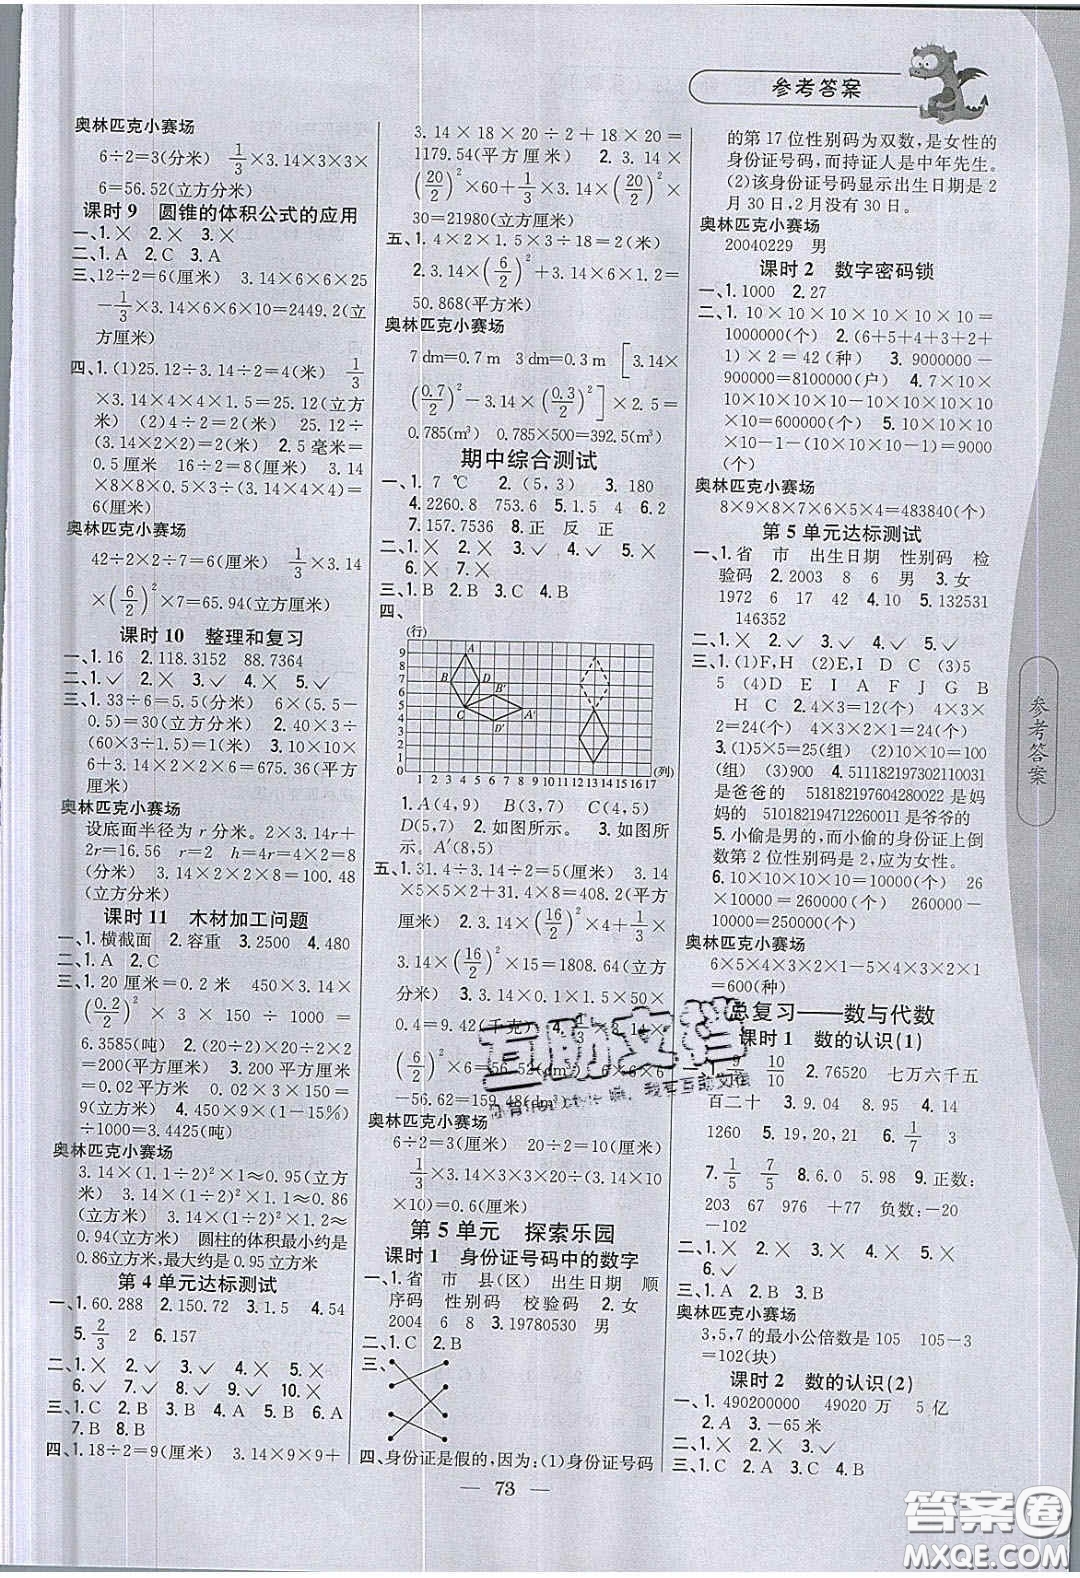 参考答案
奥林匹克小赛场
6÷2=3(分米) 1/3×3.14×3×3×
6=56.52(立方分米)
课时9 圆锥的体积公式的应用
一、1.× 2.× 3.×
二、1.A 2.C 3.A
三、12÷2=6(厘米) 3.14×6×6×25
－1/3×3.14×6×6×10=2449.2(立
方厘米)
四、1.(1)25.12÷3.14÷2=4(米) 1/3
×3.14×4×4×1.5=25.12(立方
米) (2)4÷2=2(米) 25.12÷
(3.14×2×2)=2(米) 2.5毫米=
0.5厘米 16÷2=8(厘米) 3.14
×8×8×0.5×250=25120(立方
厘米)
奥林匹克小赛场
42÷2×2÷7=6(厘米) 1/3×3.14
×(6/2)²×7=65.94(立方厘米)
课时10 整理和复习
一、1.16 2.118.3152 88.7364
二、1.✓ 2.× 3.× 4.✓ 5.✓
三、1.33÷6=5.5(分米) 6×(5.5÷
5)×5=30(立方分米) 2.40×3÷
(2×2)=30(厘米) 3.10×10×
6+3.14×2×2×6=675.36(平方
厘米)
奥林匹克小赛场
设底面半径为r分米。2×3.14r+
2r=16.56 r=2 h=4r=4×2=8
(分米) 3.14×2×2×8=100.48
(立方分米)
课时11 木材加工问题
一、1.横截面 2.容重 3.2500 4.480
二、1.A 2.C
三、1.20厘米=0.2米 450×3.14×
(0.2/2)²×3×150÷1000=
6.3585(吨) 2.(20÷2)×(20÷2)
×2=200(平方厘米) 200平方厘
米=0.02平方米 0.02×3=0.06
(立方米) 4.450×9×(1－15%)
÷1000=3.4425(吨)
奥林匹克小赛场
3.14×(1.1÷2)²×1≈0.95(立方
米) 3.14×(1÷2)²×1.1≈0.86
(立方米) 3.14×(1÷2)²×1.2≈
0.94(立方米) 圆柱的体积最小约是
0.86立方米,最大约是0.95立方米
第4单元达标测试
一、1.60.288 2.150.72 3.1.5 4.54
5.2/3 2 6.157
二、1.× 2.✓ 3.✓ 4.× 5.×
6.✓ 7.✓ 8.✓ 9.× 10.×
三、1.C 2.B 3.A 4.C 5.B 6.A
7.B 8.B
四、1.18÷2=9(厘米) 3.14×9×9+
3.14×18×20÷2+18×20=
1179.54(平方厘米) 2.3.14×
(20/2)²×60+1/3×3.14×(20/2)²×
30=21980(立方厘米)
五、1.4×2×1.5×3÷18=2(厘米)
2.3.14×(6/2)²+3.14×6×1.2=
50.868(平方米)
奥林匹克小赛场
7 dm=0.7 m 3dm=0.3 m [3.14×
(0.7/2)²－3.14×(0.3/2)²]×2.5=
0.785(m³) 0.785×500=392.5(m³)
期中综合测试
一、1.7 ℃ 2.(5,3) 3.180
4.2260.8 753.6 5.1.5 4 6.2
7.157.7536 8.正 反 正
二、1.× 2.× 3.× 4.✓ 5.×
6.× 7.×
三、1.B 2.B 3.C 4.B
四、
(行)
9
8
7
6
5
4
3
2
1
0
A
B
D
B′
C
A′
D′
1 2 3 4 5 6 7 8 9 10 11 12 13 14 15 16 17(列)
1.A(4,9) B(3,7) C(4,5)
D(5,7) 2.如图所示。 3.如图所
示。A′(8,5)
五、1.31.4÷3.14÷2=5(厘米) 3.14
×5×5×2+31.4×8=408.2(平方
厘米) 2.3.14×(16/2)²×6+1/3×
3.14×(16/2)²×9=1808.64(立方
分米)
0.4=9.42(千克)
(6/2)²×6=56.52(dm³) 6×6×6
－56.62=159.48(dm³)
奥林匹克小赛场
6÷2=3(厘米) 20÷2=10(厘米)
1/3×3.14×3×3×20÷(3.14×10
×10)=0.6(厘米)
第5单元 探索乐园
课时1 身份证号码中的数字
一、1.省 市 县(区) 出生日期 顺
序码 性别码 校验码 2.女
2004 6 8 3.19780530 男
二、1.C 2.B
三、
四、身份证是假的,因为:(1)身份证号码
的第17位性别码为双数,是女性的
身份证号码,而持证人是中年先生。
(2)该身份证号码显示出生日期是2
月30日,2月没有30日。
奥林匹克小赛场
20040229 男
课时2 数字密码锁
一、1.1000 2.27
二、1.10×10×10×10×10×10=
1000000(个) 2.(6+5+4+3+2+
1)×2=42(种) 3.9000000－
900000=8100000(户) 4.7×10×
10×10×10×10－10×10×10×10
×10=600000(个) 5.10×10×10
×10－1－(10×10×10－1)=9000
(个)
奥林匹克小赛场
8×9×8×7×6×5×4=483840(个)
第5单元达标测试
一、1.省 市 出生日期 性别码 检
验码 2.2003 8 6 男 3.女
1972 6 17 42 4.10 5.132531
146352
二、1.× 2.✓ 3.✓ 4.✓ 5.✓
三、1.(1)F,H (2)A,C,D (3)5
5 (4)D E I A F J G B
H C 2.4×3=12(个) 4×3×
2=24(个) 4×3×2×1=24(个)
3.(1)5×5=25(组) (2)10×10=100
(组) 4.511518219730210××××
是爸爸的 518182197604280022是
妈妈的 510182194712260001是爷爷的
5.小偷是男的,而小偷的身份证上倒
数第2位性别码是2,应为女性。
6.10×10×10×10=10000(个) 26
×10000=260000(个) 260000
－10000=250000(个)
奥林匹克小赛场
6×5×4×3×2×1－5×4×3×2×1
=600(种)
总复习——数与代数
课时1 数的认识(1)
9/10 10/10 2.76520 七万六千五
百二十 3.9.04 8.95 4.14
1260 5.19.2 20.1 6.1/7 3
7.1/5 7/5 8.6.0 5.98 9.正数:
203 67 976 +77 负数:－20
－102
二、1.✓ 2.✓ 3.× 4.× 5.×
6.✓
三、1.C 2.A 3.B 4.B 5.A
奥林匹克小赛场
3,5,7的最小公倍数是105 105－3
=102(块)
课时2 数的认识(2)
一、1.490200000 49020万 5亿
2.A 3.－65米
二、1.× 2.✓ 3.✓ 4.× 5.✓
三、1.C 2.C 3.C 4.B
参考答案
— 73 —
互助文档
答案圈
MXQE.COM